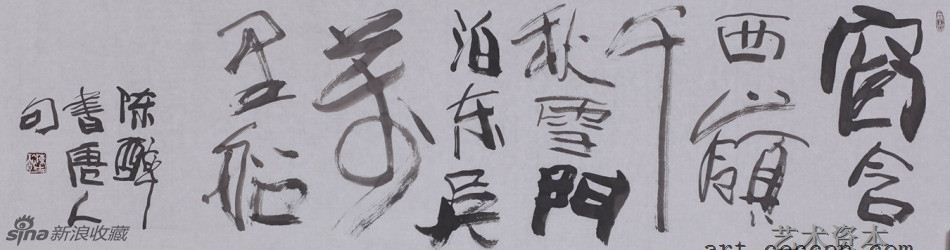 窗含
西嶺
千
秋雪門
泊东吴
萬
里船
陈醉
書唐人
句
sina新浪收藏
艺术资本